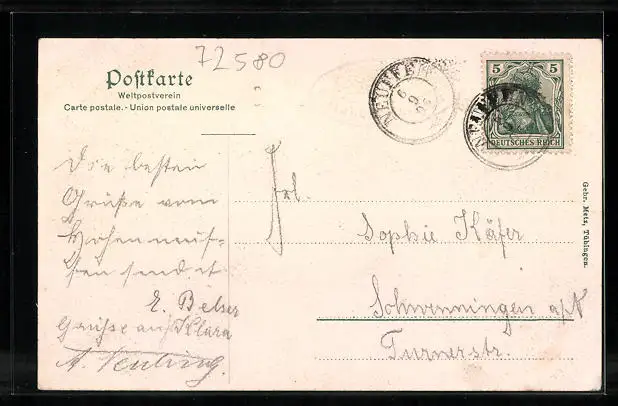 72580
Postkarte
Weltpostverein
Carte postale. - Union postale universelle
NEUFFEN
5 5
DEUTSCHES REICH
Die besten
Grüße vom
Hohenneuf-
fen sendet
E. Belser
Grüße an Klara
Frl
Sophie Käfer
Schwenningen a/N
Turnerstr.
Gebr. Metz, Tübingen.